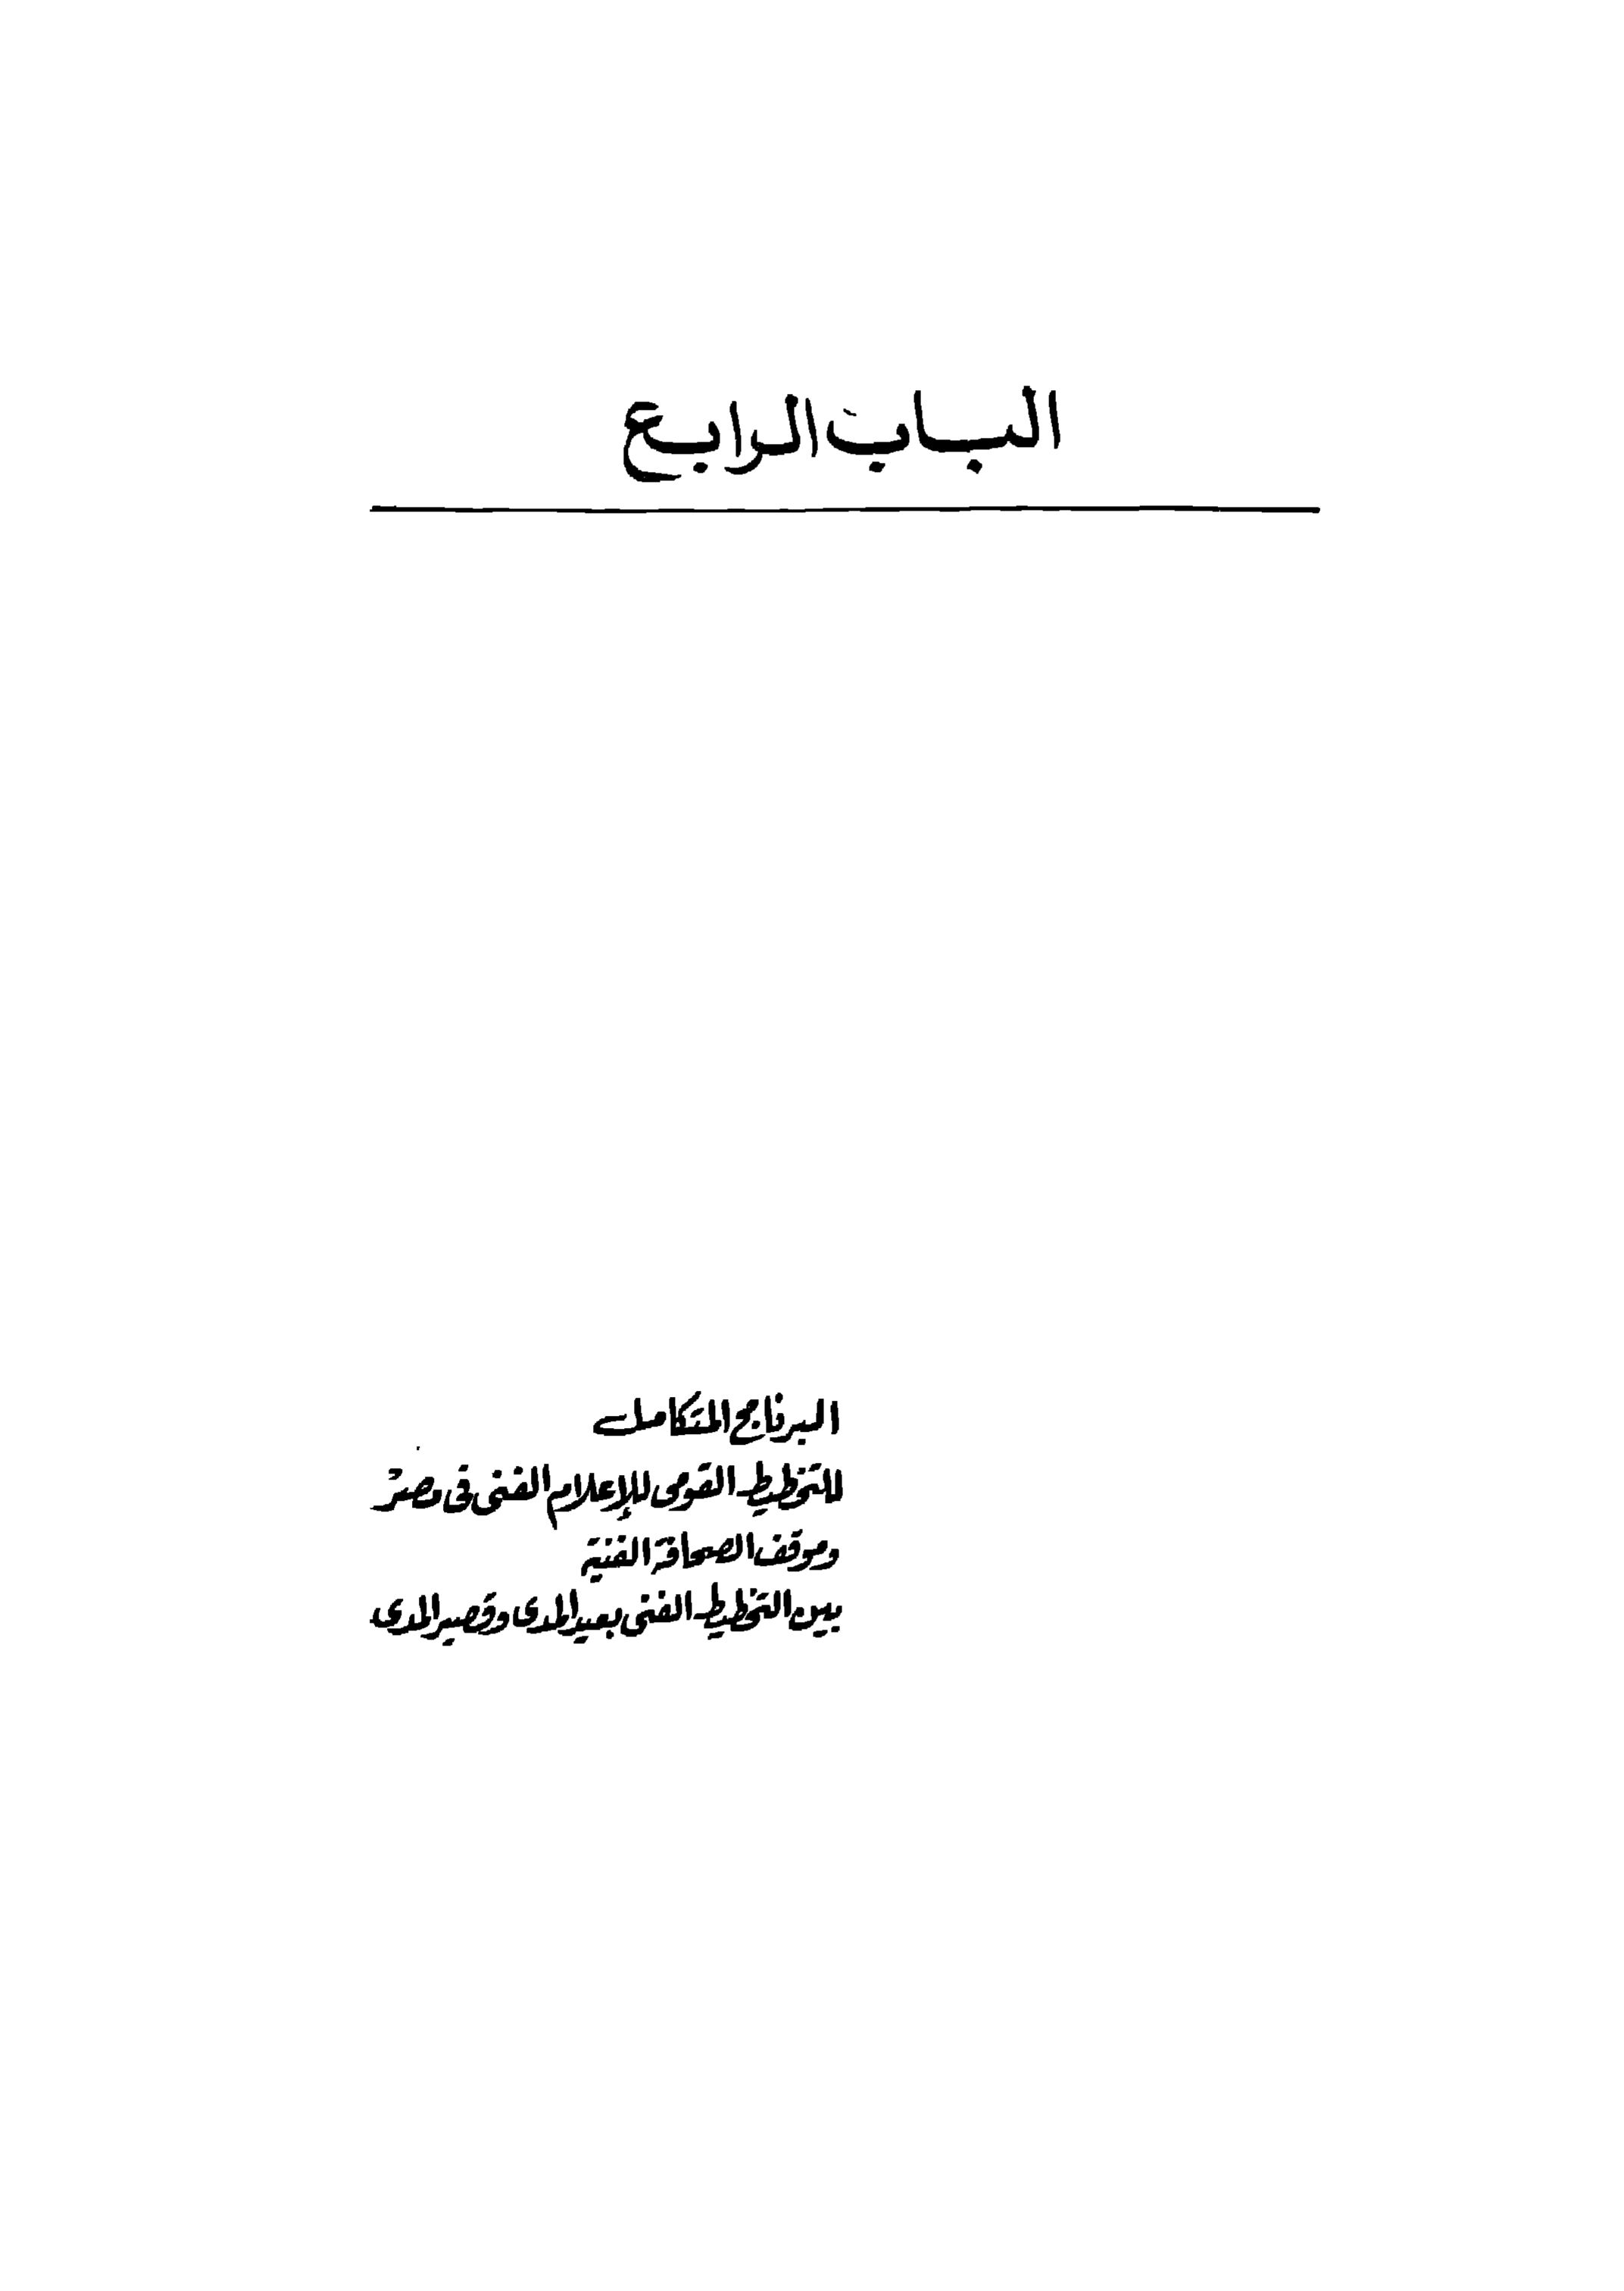 الباب الرابع
البرنامج المتكامل
للتخطيط القومى للإعلام الفنى فى مصر
وموقف الصحافة الفنية
بين التخطيط الفنى بعيد المدى وقصير المدى